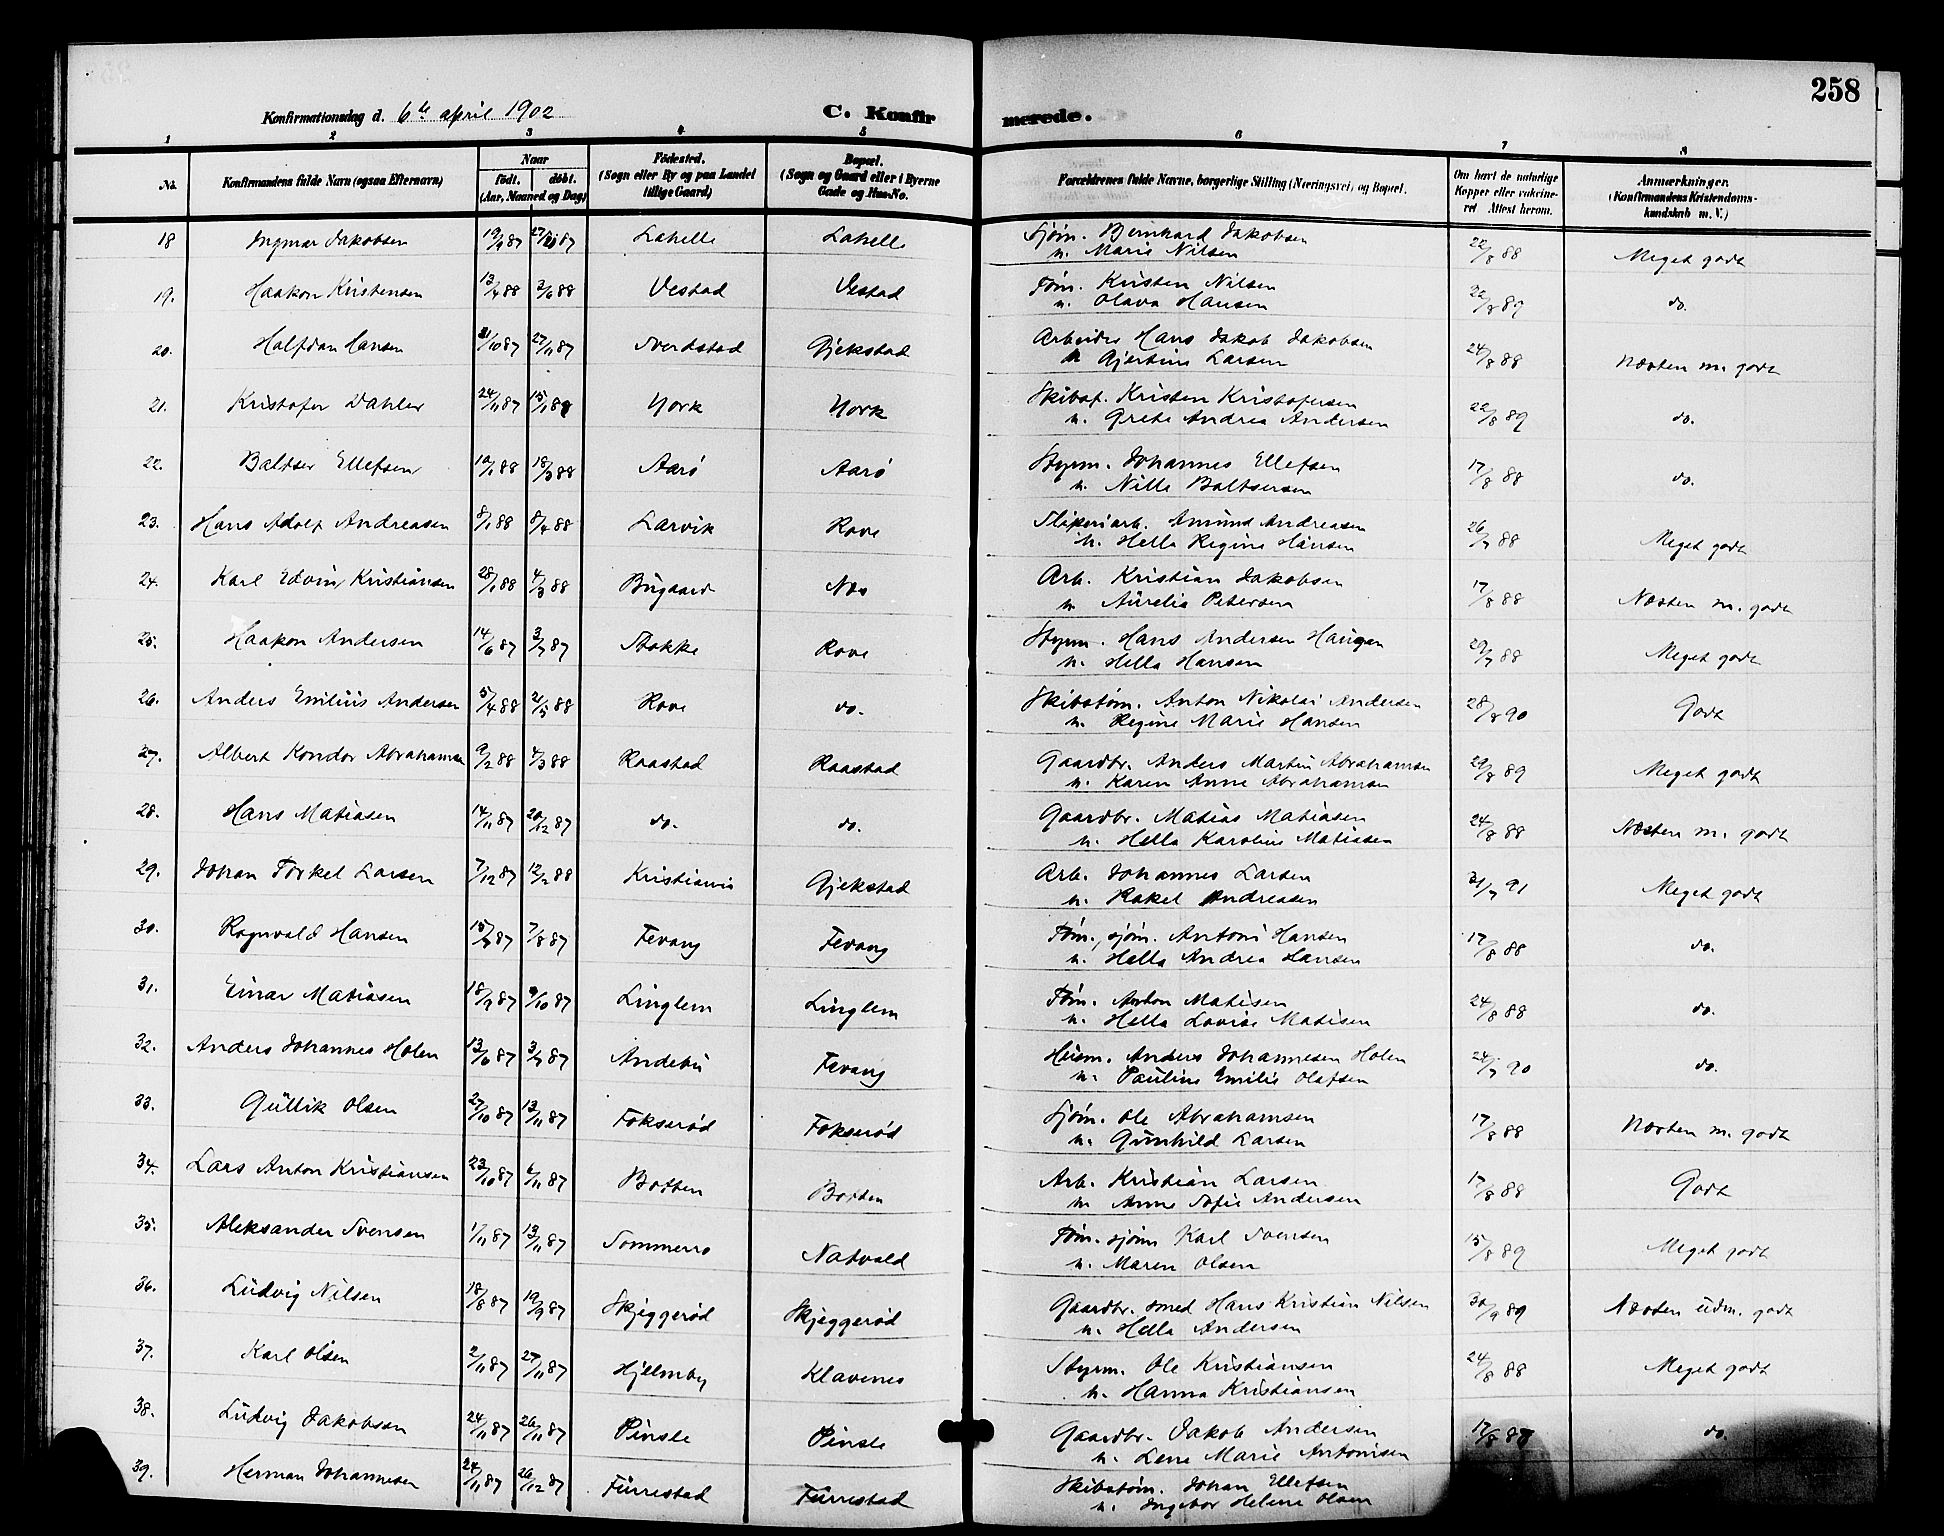 258
Konfirmationsdag d. 6te april 1902
C. Konfirmerede.
1 2 3 4 5 6 7 8
No. Konfirmandens fulde Navn (ogsaa Efternavn) Naar födt. döbt. (Aar, Maaned og Dag) Födested. (Sogn eller By og paa Landet tillige Gaard) Bopæl. (Sogn og Gaard eller i Byerne Gade og Hus-No. Forældrenes fulde Navne, borgerlige Stilling (Næringsvei) og Bopæl. Om havt de naturlige Kopper eller vakcineret Attest herom. Anmærkninger. (Konfirmandens Kristendomskundskab m. V.)
18 Ingmar Jakobsen 19/9 87 87 Lahelle Lahelle Sjøm. Bernhard Jakobsen 22/8 88 Meget godt
u. Marie Nilsen
19. Haakon Kristensen 13/4 88 3/6 88 Vestad Vestad Tøm. Kristen Nilsen 22/8 89 do.
u. Olava Hansen
20. Halfdan Hansen 31/10 87 27/11 87 Sverdstad Gjekstad Arbeider Hans Jakob Jakobsen 24/8 88 Næsten m. godt
u. Gjertine Larsen
21. Kristofer Dahler 24/11 87 15/1 88 York York Skibsf. Kristen Kristofersen 22/8 89 do.
u. Grete Andrea Andersen
22. Baltser Ellefsen 10/1 88 18/3 88 Aarø Aarø Styrm. Johannes Ellefsen 17/8 88 do.
u. Nille Baltsersen
23. Hans Adolf Andreasen 8/1 88 8/4 88 Larvik Rove Sliperiarb. Amund Andreasen 26/7 88 Meget godt
u. Hella Regine Hansen
24. Karl Edvin Kristiansen 28/1 88 4/3 88 Bugaard Nes Arb. Kristian Jakobsen 17/8 88 Næsten m. godt
u. Aurelia Petersen
25. Haakon Andersen 14/6 87 3/7 87 Stokke Rove Styrm. Hans Andersen Haugen 29/7 88 Meget godt
u. Hella Hansen
26. Anders Emilius Andersen 5/4 88 21/5 88 Rove do. Skibstøm. Anton Nikolai Andersen 28/8 90 Godt
u. Regine Marie Hansen
27. Albert Kondor Abrahamsen 9/2 88 4/3 88 Raastad Raastad Gaardbr. Anders Martin Abrahamsen 29/8 89 Meget godt
u. Karen Anne Abrahamsen
28. Hans Matiasen 14/11 87 20/12 87 do. do. Gaardbr. Matias Matiasen 24/8 88 Næsten m. godt
u. Hella Karoline Matiasen
29. Johan Torkel Larsen 7/12 87 12/2 88 Kristiania Gjekstad Arb. Johannes Larsen 31/7 91 Meget godt
u. Rakel Andreasen
30. Ragnvald Hansen 15/7 87 7/8 87 Fevang Fevang Tøm., sjøm. Antoni Hansen 17/8 88 do.
u. Hella Andrea Hansen
31. Einar Matiasen 18/9 87 9/10 87 Linglem Linglem Tøm. Anton Matisen 24/8 88 do.
u. Hella Lovise Matisen
32. Anders Johannes Holen 13/6 87 3/7 87 Andebu Fevang Husm. Anders Johannesen Holen 24/7 90 do.
u. Pauline Emilie Olafsen
33. Gullik Olsen 27/10 87 13/11 87 Fokserød Fokserød Sjøm. Ole Abrahamsen 17/8 88 Næsten m. godt
u. Gunhild Larsen
34. Lars Anton Kristiansen 23/10 87 6/11 87 Botten Botten Arb. Kristian Larsen 17/8 88 Godt
u. Anne Sofie Andersen
35. Aleksander Svensen 1/11 87 13/11 87 Sommerro Natvald Tøm. sjøm Karl Svensen 15/8 89 Meget godt
u. Maren Olsen
36. Ludvig Nilsen 18/8 87 19/9 87 Skjeggerød Skjeggerød Gaardbr. smed Hans Kristian Nilsen 30/9 89 Næsten udm. godt
u. Hella Andersen
37. Karl Olsen 2/11 87 27/11 87 Hjelmby Klavenes Styrm. Ole Kristiansen 24/8 88 Meget godt
u. Hanna Kristiansen
38. Ludvig Jakobsen 24/11 87 26/11 87 Pinsle Pinsle Gaardbr. Jakob Andersen 17/8 do.
u. Lene Marie Antonisen
39. Herman Johannesen 24/11 87 26/12 87 Furrestad Furrestad Skibstøm. Johan Ellefsen
u. Ingebor Helene Olsen